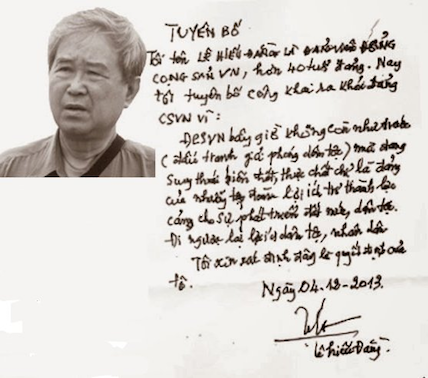 TUYÊN BỐ
Tôi tên LÊ HIẾU ĐẰNG là ĐẢNG VIÊN ĐẢNG
CỘNG SẢN VN, hơn 40 tuổi đảng. Nay
tôi tuyên bố công khai ra khỏi đảng
CSVN vì:
ĐCSVN bây giờ không còn như trước
(đấu tranh giải phóng dân tộc) mà đang
suy thoái biến chất, thực chất chỉ là đảng
của những tập đoàn lợi ích trở thành lực
cảng cho sự phát triển đất nước, dân tộc.
Đi ngược lại lợi ích dân tộc, nhân dân
Tôi xin xác định đây là quyết định của
tôi.
Ngày 04.12-2013.
Lê Hiếu Đằng